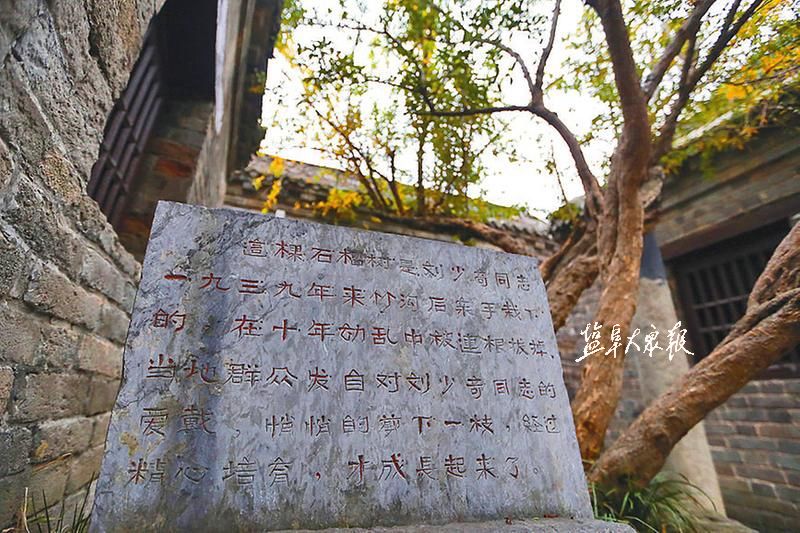 這棵石榴树是刘少奇同志
一九三九年来竹沟后亲手栽下
的，在十年动乱中被連根拔掉，
当地群众发自对刘少奇同志的
爱戴，悄悄的剪下一枝，经过
精心培育，才成長起来了。
盐阜大众报